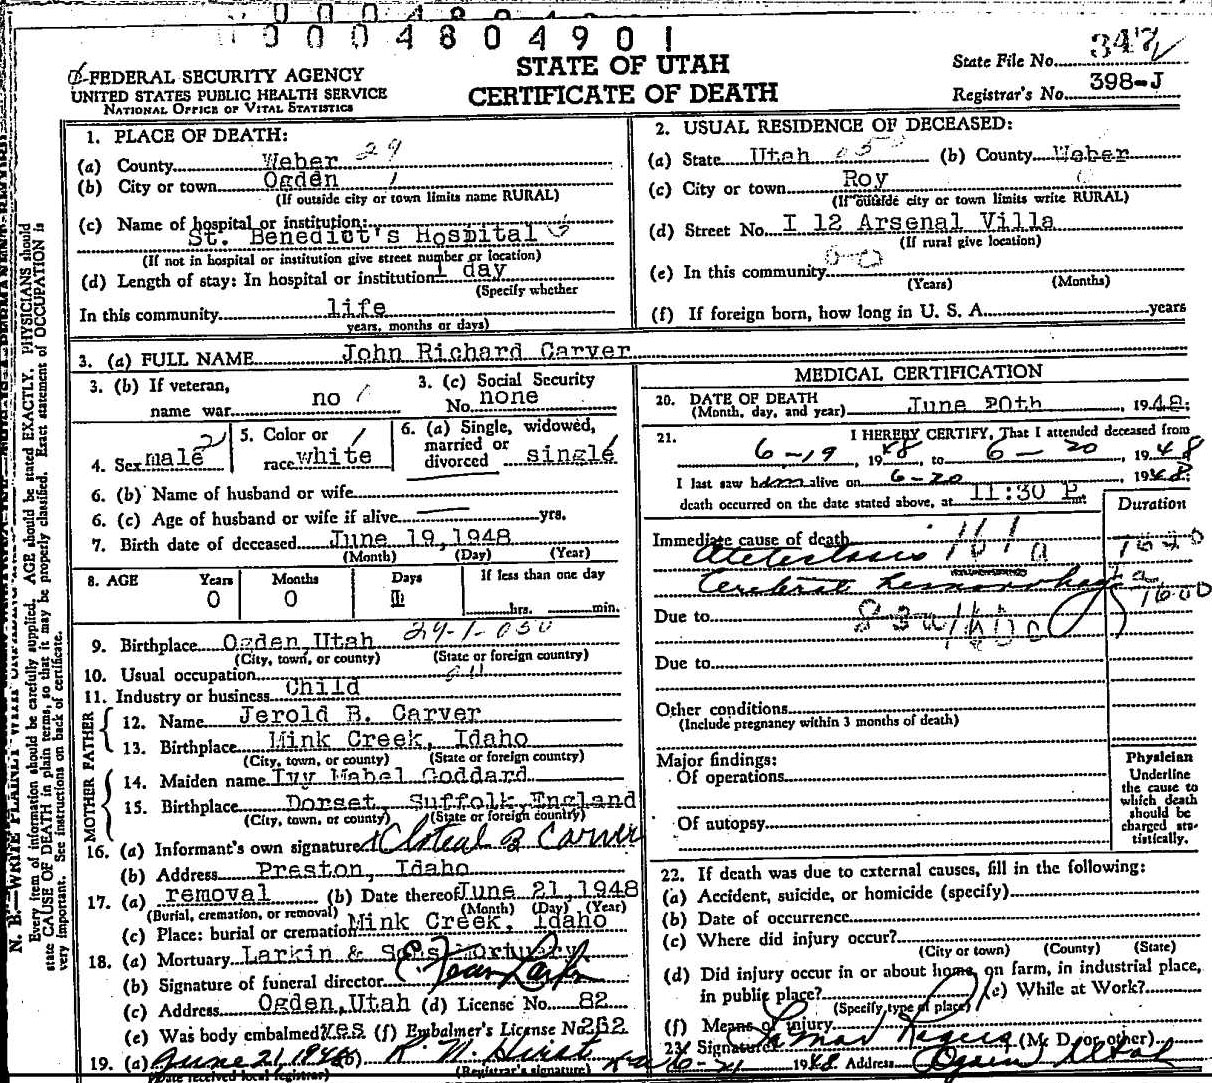 0004804901
STATE OF UTAH
CERTIFICATE OF DEATH
FEDERAL SECURITY AGENCY
UNITED STATES PUBLIC HEALTH SERVICE
NATIONAL OFFICE OF VITAL STATISTICS
State File No. 347
Registrar's No. 398-J
1. PLACE OF DEATH:
(a) County Weber 29
(b) City or town Ogden 1
(If outside city or town limits name RURAL)
(c) Name of hospital or institution:
St. Benedict's Hospital
(If not in hospital or institution give street number or location)
(d) Length of stay: In hospital or institution 1 day
(Specify whether
In this community life
years, months or days)
2. USUAL RESIDENCE OF DECEASED:
(a) State Utah (b) County Weber
(c) City or town Roy
(If outside city or town limits write RURAL)
(d) Street No. I 12 Arsenal Villa
(If rural give location)
(e) In this community
(Years) (Months)
(f) If foreign born, how long in U. S. A. years
3. (a) FULL NAME John Richard Carver
3. (b) If veteran,
name war no
3. (c) Social Security
No. none
4. Sex male 2
5. Color or
race white
6. (a) Single, widowed,
married or
divorced single
6. (b) Name of husband or wife
6. (c) Age of husband or wife if alive yrs.
7. Birth date of deceased June 19, 1948
(Month) (Day) (Year)
8. AGE Years Months Days If less than one day
0 0 hrs. min.
9. Birthplace Ogden, Utah 29-1-050
(City, town, or county) (State or foreign country)
10. Usual occupation
11. Industry or business Child
FATHER
12. Name Jerold B. Carver
13. Birthplace Mink Creek, Idaho
(City, town, or county) (State or foreign country)
MOTHER
14. Maiden name Ivy Mabel Goddard
15. Birthplace Dorset, Suffolk, England
(City, town, or county) (State or foreign country)
16. (a) Informant's own signature B Carver
(b) Address Preston, Idaho
17. (a) removal (b) Date thereof June 21, 1948
(Burial, cremation, or removal) (Month) (Day) (Year)
(c) Place: burial or cremation Mink Creek, Idaho
18. (a) Mortuary Larkin & Sons Mortuary
(b) Signature of funeral director
(c) Address Ogden, Utah (d) License No. 82
(e) Was body embalmed? Yes (f) Embalmer's License No. 262
19. (a) June 21, 1948 (b)
(Date received local registrar) (Registrar's signature)
MEDICAL CERTIFICATION
20. DATE OF DEATH
(Month, day, and year) June 20th, 1948
21. I HEREBY CERTIFY, That I attended deceased from
6-19, 1948, to 6-20, 1948
I last saw him alive on 6-20, 1948
death occurred on the date stated above, at 11:30 P.
Duration
Immediate cause of death
Atelectasis 161 a
Cerebral hemorrhage
Due to
Due to
Other conditions
(Include pregnancy within 3 months of death)
Major findings:
Of operations
Of autopsy
Physician
Underline
the cause to
which death
should be
charged sta-
tistically.
22. If death was due to external causes, fill in the following:
(a) Accident, suicide, or homicide (specify)
(b) Date of occurrence
(c) Where did injury occur?
(City or town) (County) (State)
(d) Did injury occur in or about home, on farm, in industrial place,
in public place? (e) While at Work?
(Specify type of place)
(f) Means of injury
23. Signature Rogers (M. D. or other)
6-21 1948 Address Ogden Utah
N. B.—WRITE PLAINLY WITH UNFADING
Every item of information should be carefully supplied. AGE should be stated EXACTLY. PHYSICIANS should
state CAUSE OF DEATH in plain terms, so that it may be properly classified. Exact statement of OCCUPATION is
very important. See instructions on back of certificate.